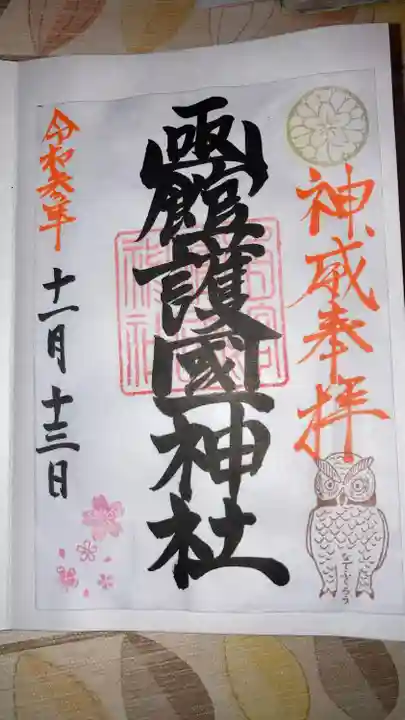 神威奉拝
函館護國神社
令和参年
十一月十三日
なでふくろう